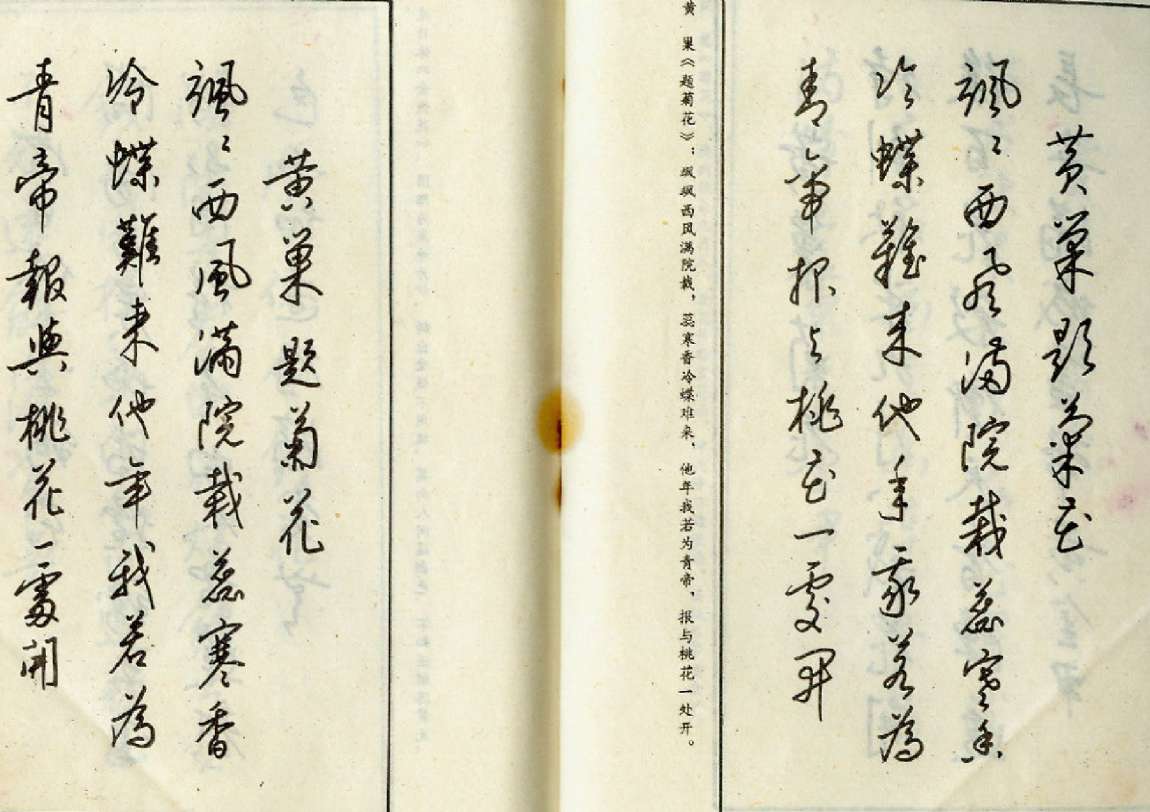 黄巢题菊花
飒〻西风满院栽蕊寒香
冷蝶难来他年我若为
青帝报与桃花一处开
黄 巢《题菊花》：飒飒西风满院栽，蕊寒香冷蝶难来，他年我若为青帝，报与桃花一处开。
黄巢题菊花
颯〻西風满院栽蕊寒香
冷蝶難来他年我若為
青帝報與桃花一處開